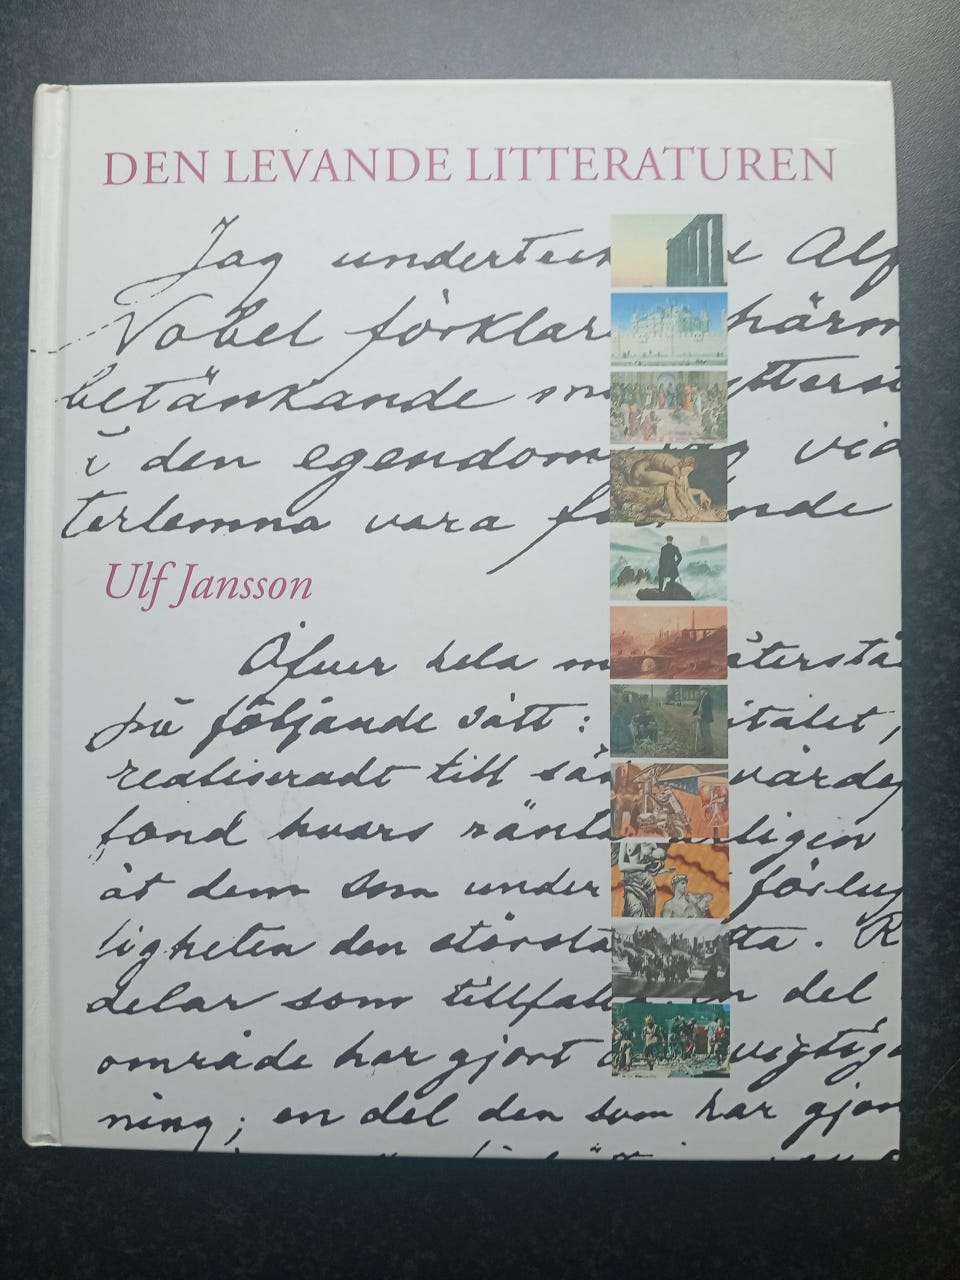 DEN LEVANDE LITTERATUREN
Jag undertec Alf
Nobel förklar härm
betänkande m ytters
i den egendom vid
terlemna vara f nde
Ulf Jansson
Öfver hela återstå
på följande sätt: italet,
realiseradt till sä värde
fond hvars ränta ligen
åt dem som under förlu
ligheten den största tta. R
delar som tillfalle en del
område har gjort vigtig
ning; en del den som har gjor